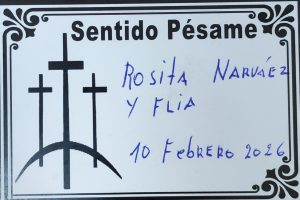 Sentido Pésame
Rosita Narváez
y Flia
10 Febrero 2026